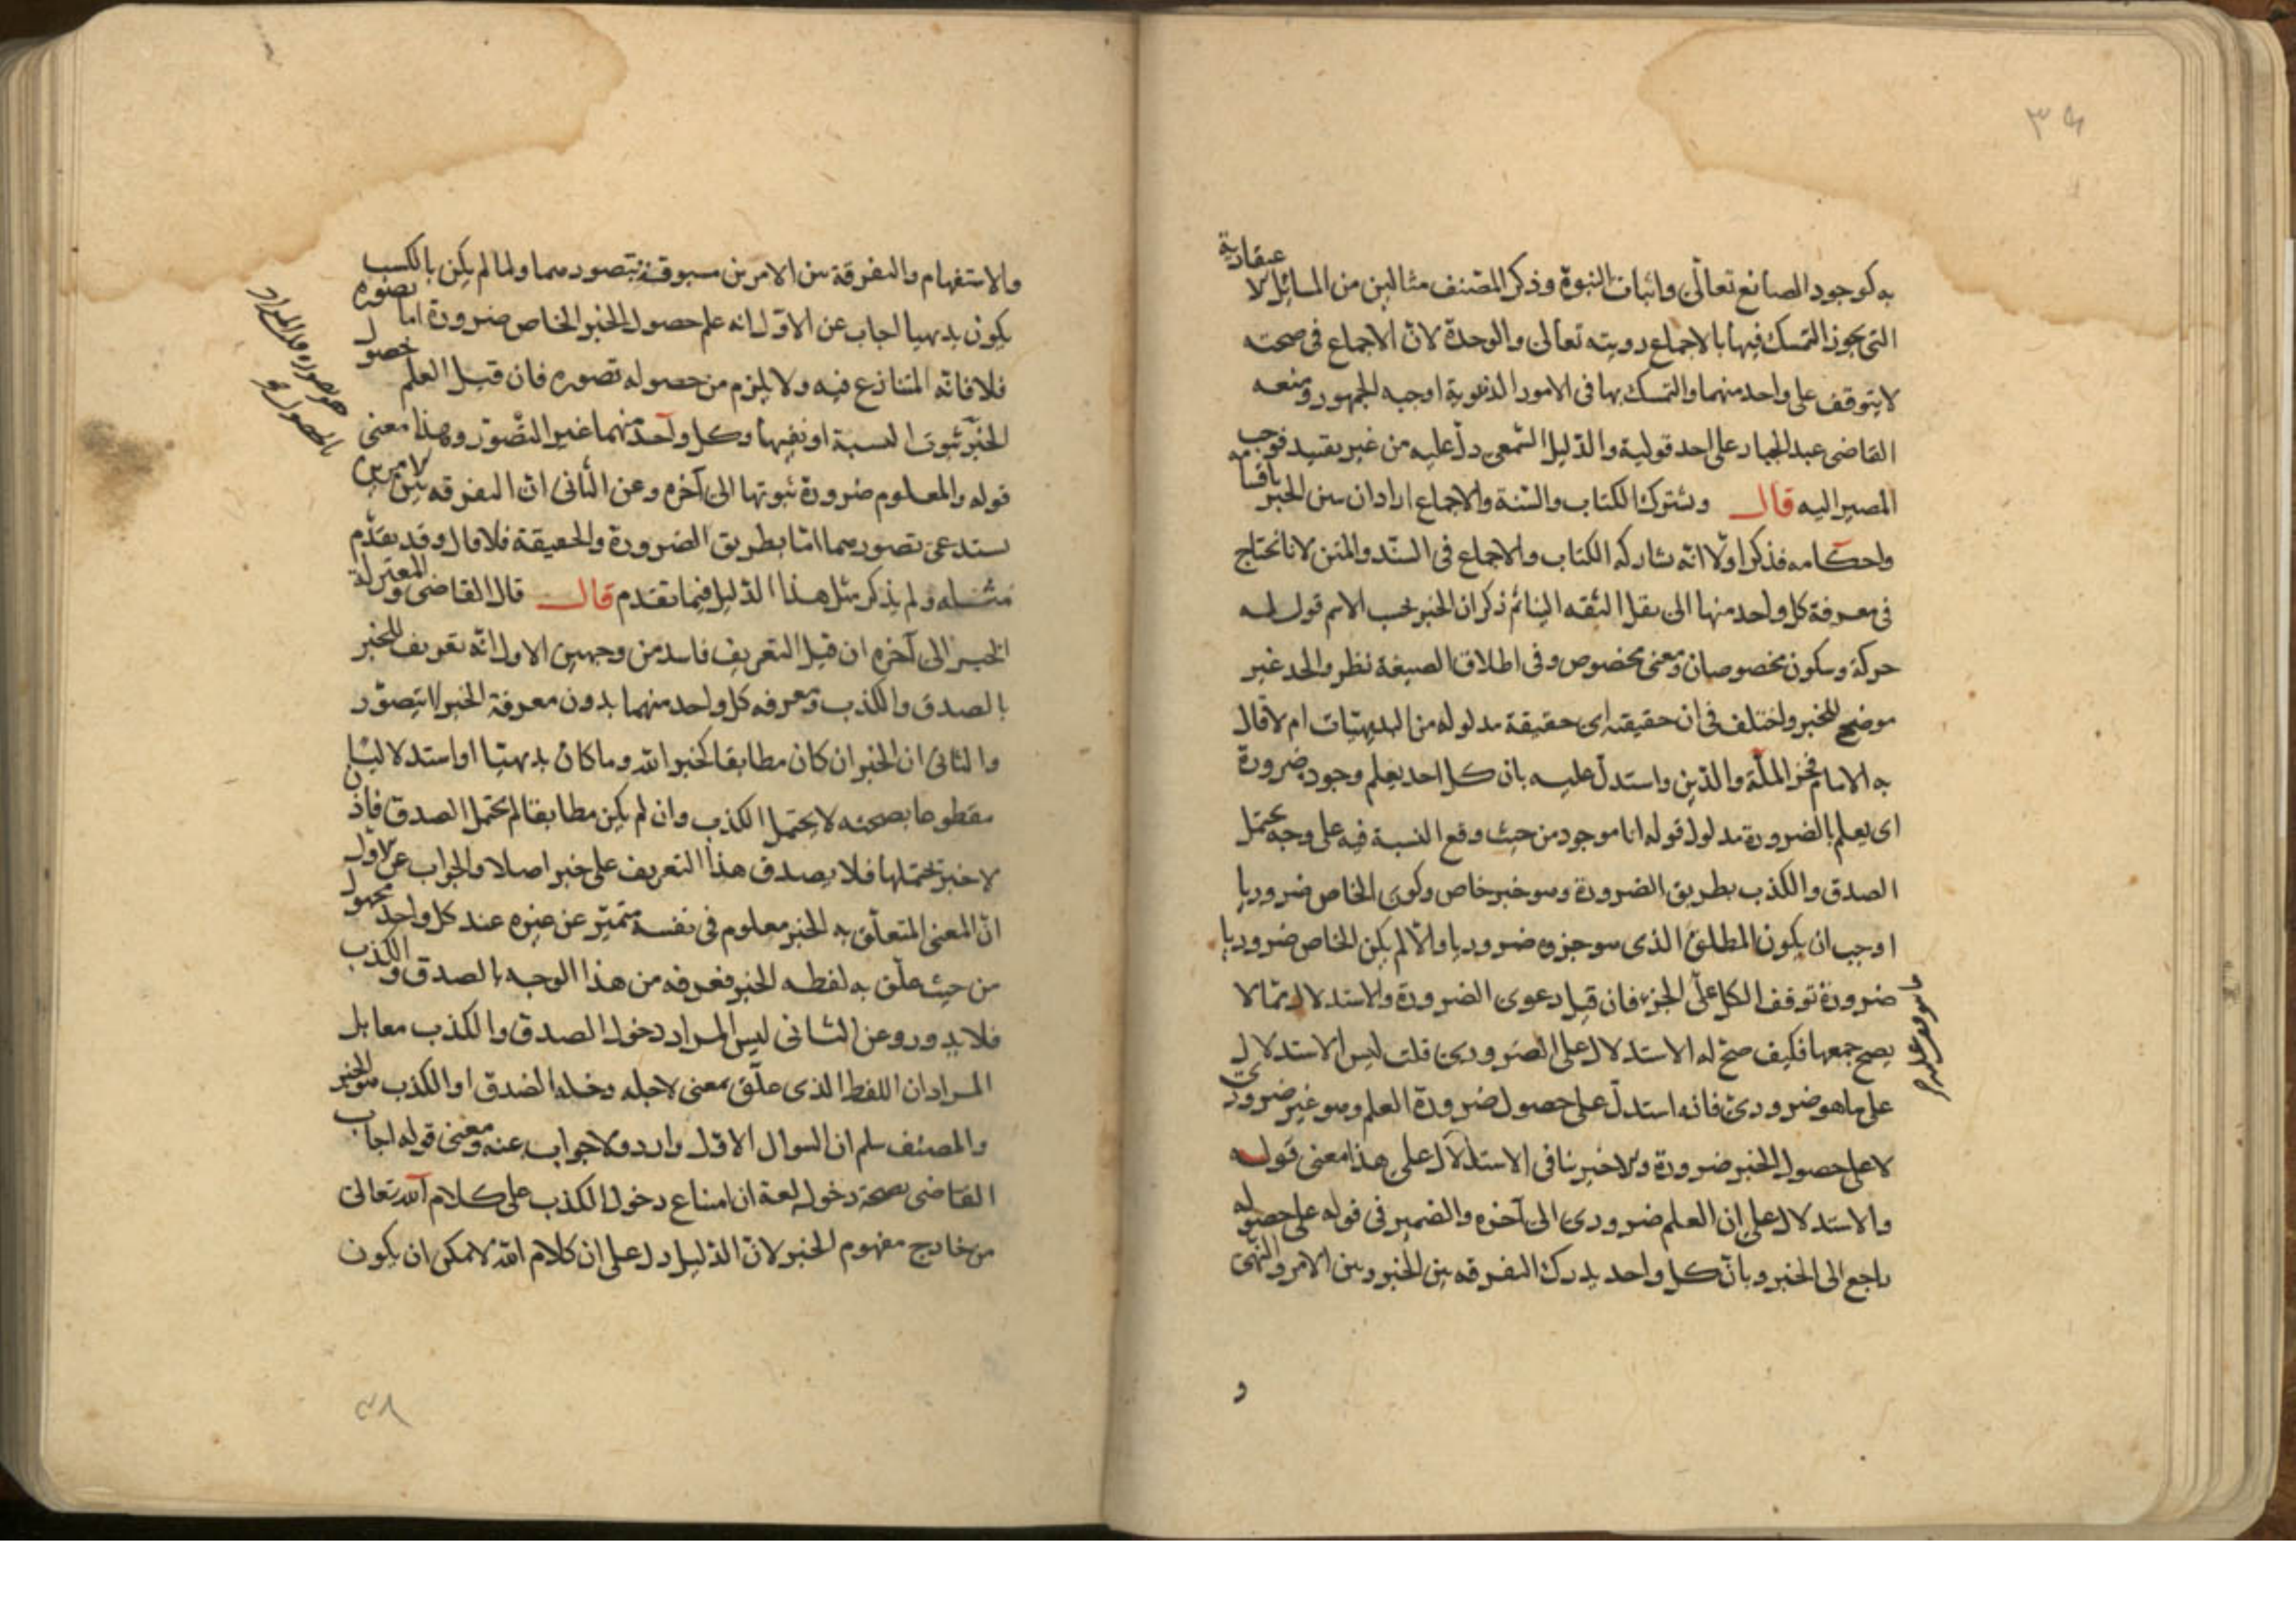 به كوجود الصانع تعالى واثبات النبوة وذكر المصنف مثالين من المسائل الاعتقادية
التى يجوز التمسك فيها بالاجماع رويته تعالى والوحدة لان الاجماع فى صحته
لا يتوقف على واحد منهما والتمسك بها فى الامور الدنيوية اوجبه الجمهور ومنعه
القاضى عبد الجبار على احد قوليه والدليل السمعى دل عليه من غير تقييد فوجب
المصير اليه قال ويشترك الكتاب والسنة والاجماع اراد ان يبين الخبر باقسامه
واحكامه فذكر اولا انه يشاركه الكتاب والاجماع فى السند والمتن لانا نحتاج
فى معرفة كل واحد منها الى نقل الثقه الينا ثم ذكر ان الخبر بحسب الاسم قول له
حركة وسكون مخصوصان ومعنى مخصوص وفى اطلاق الصيغة نظر والحد غير
موضح للخبر واختلف فى ان حقيقته اى حقيقة مدلوله من البديهيات ام لا قال
به الامام فخر الملة والدين واستدل عليه بان كل احد يعلم وجوده ضرورة
اى يعلم بالضرورة مدلول قوله انا موجود من حيث وقع النسبة فيه على وجه يحتمل
الصدق والكذب بطريق الضرورة وهو خبر خاص وكون الخاص ضروريا
اوجب ان يكون المطلق الذى هو جزوه ضروريا والا لم يكن الخاص ضروريا
ضرورة توقف الكل على الجزء فان قيل دعوى الضرورة والاستدلال مما لا
يصح جمعها فكيف صح له الاستدلال على الضرورى قلت ليس الاستدلال
على ما هو ضرورى فانه استدل على حصول ضرورة العلم وهو غير ضرورى
لا على حصول الخبر ضرورة والاخير ينافى الاستدلال على هذا معنى قوله
والاستدلال على ان العلم ضرورى الى آخره والضمير فى قوله على حصوله
راجع الى الخبر وبان كل واحد يدرك التفرقه بين الخبر وبين الامر والنهى
و
والاستفهام والتفرقة بين الامرين مسبوقة بتصورهما ولما لم يكن بالكسب
يكون بديهيا اجاب عن الاول انه علم حصول الخبر الخاص ضرورة اما تصوره
فلا فانه المتنازع فيه ولا يلزم من حصوله تصوره فان قيل العلم حصول
الخبر ثبوت النسبة او نفيها وكل واحد منهما غير التصور وهذا معنى
قوله والمعلوم ضرورة ثبوتها الى آخره وعن الثانى ان التفرقه بين الامرين
يستدعى تصورهما اما بطريق الضرورة والحقيقة فلا قال وقد تقدم
مثله ولم يذكر مثل هذا الدليل فيما تقدم قال قال القاضى والمعتزلة
الخبر الى آخره ان قيل التعريف فاسد من وجهين الاول انه تعريف للخبر
بالصدق والكذب ومعرفه كل واحد منهما بدون معرفة الخبر لا يتصور
والثانى ان الخبر ان كان مطابقا كخبر الله وما كان بديهيا او استدلاليا
مقطوعا بصحته لا يحتمل الكذب وان لم يكن مطابقا لم يحتمل الصدق فاذن
لا خبر يحتملها فلا يصدق هذا التعريف على خبر اصلا والجواب عن الاول
ان المعنى المتعلق به الخبر معلوم فى نفسه متميز عن غيره عند كل واحد مجهول
من حيث علق به لفظه الخبر فعرفه من هذا الوجه بالصدق والكذب
فلا يدور وعن الثانى ليس المراد دخول الصدق والكذب معا بل
المراد ان اللفظ الذى علق بمعنى لاجله دخله الصدق او الكذب هو الخبر
والمصنف سلم ان السوال الاول وارد ولا جواب عنه ومعنى قوله اجاب
القاضى بصحة دخوله لغة ان امتناع دخول الكذب على كلام الله تعالى
من خارج مفهوم الخبر لان الدليل دل على ان كلام الله لا يمكن ان يكون